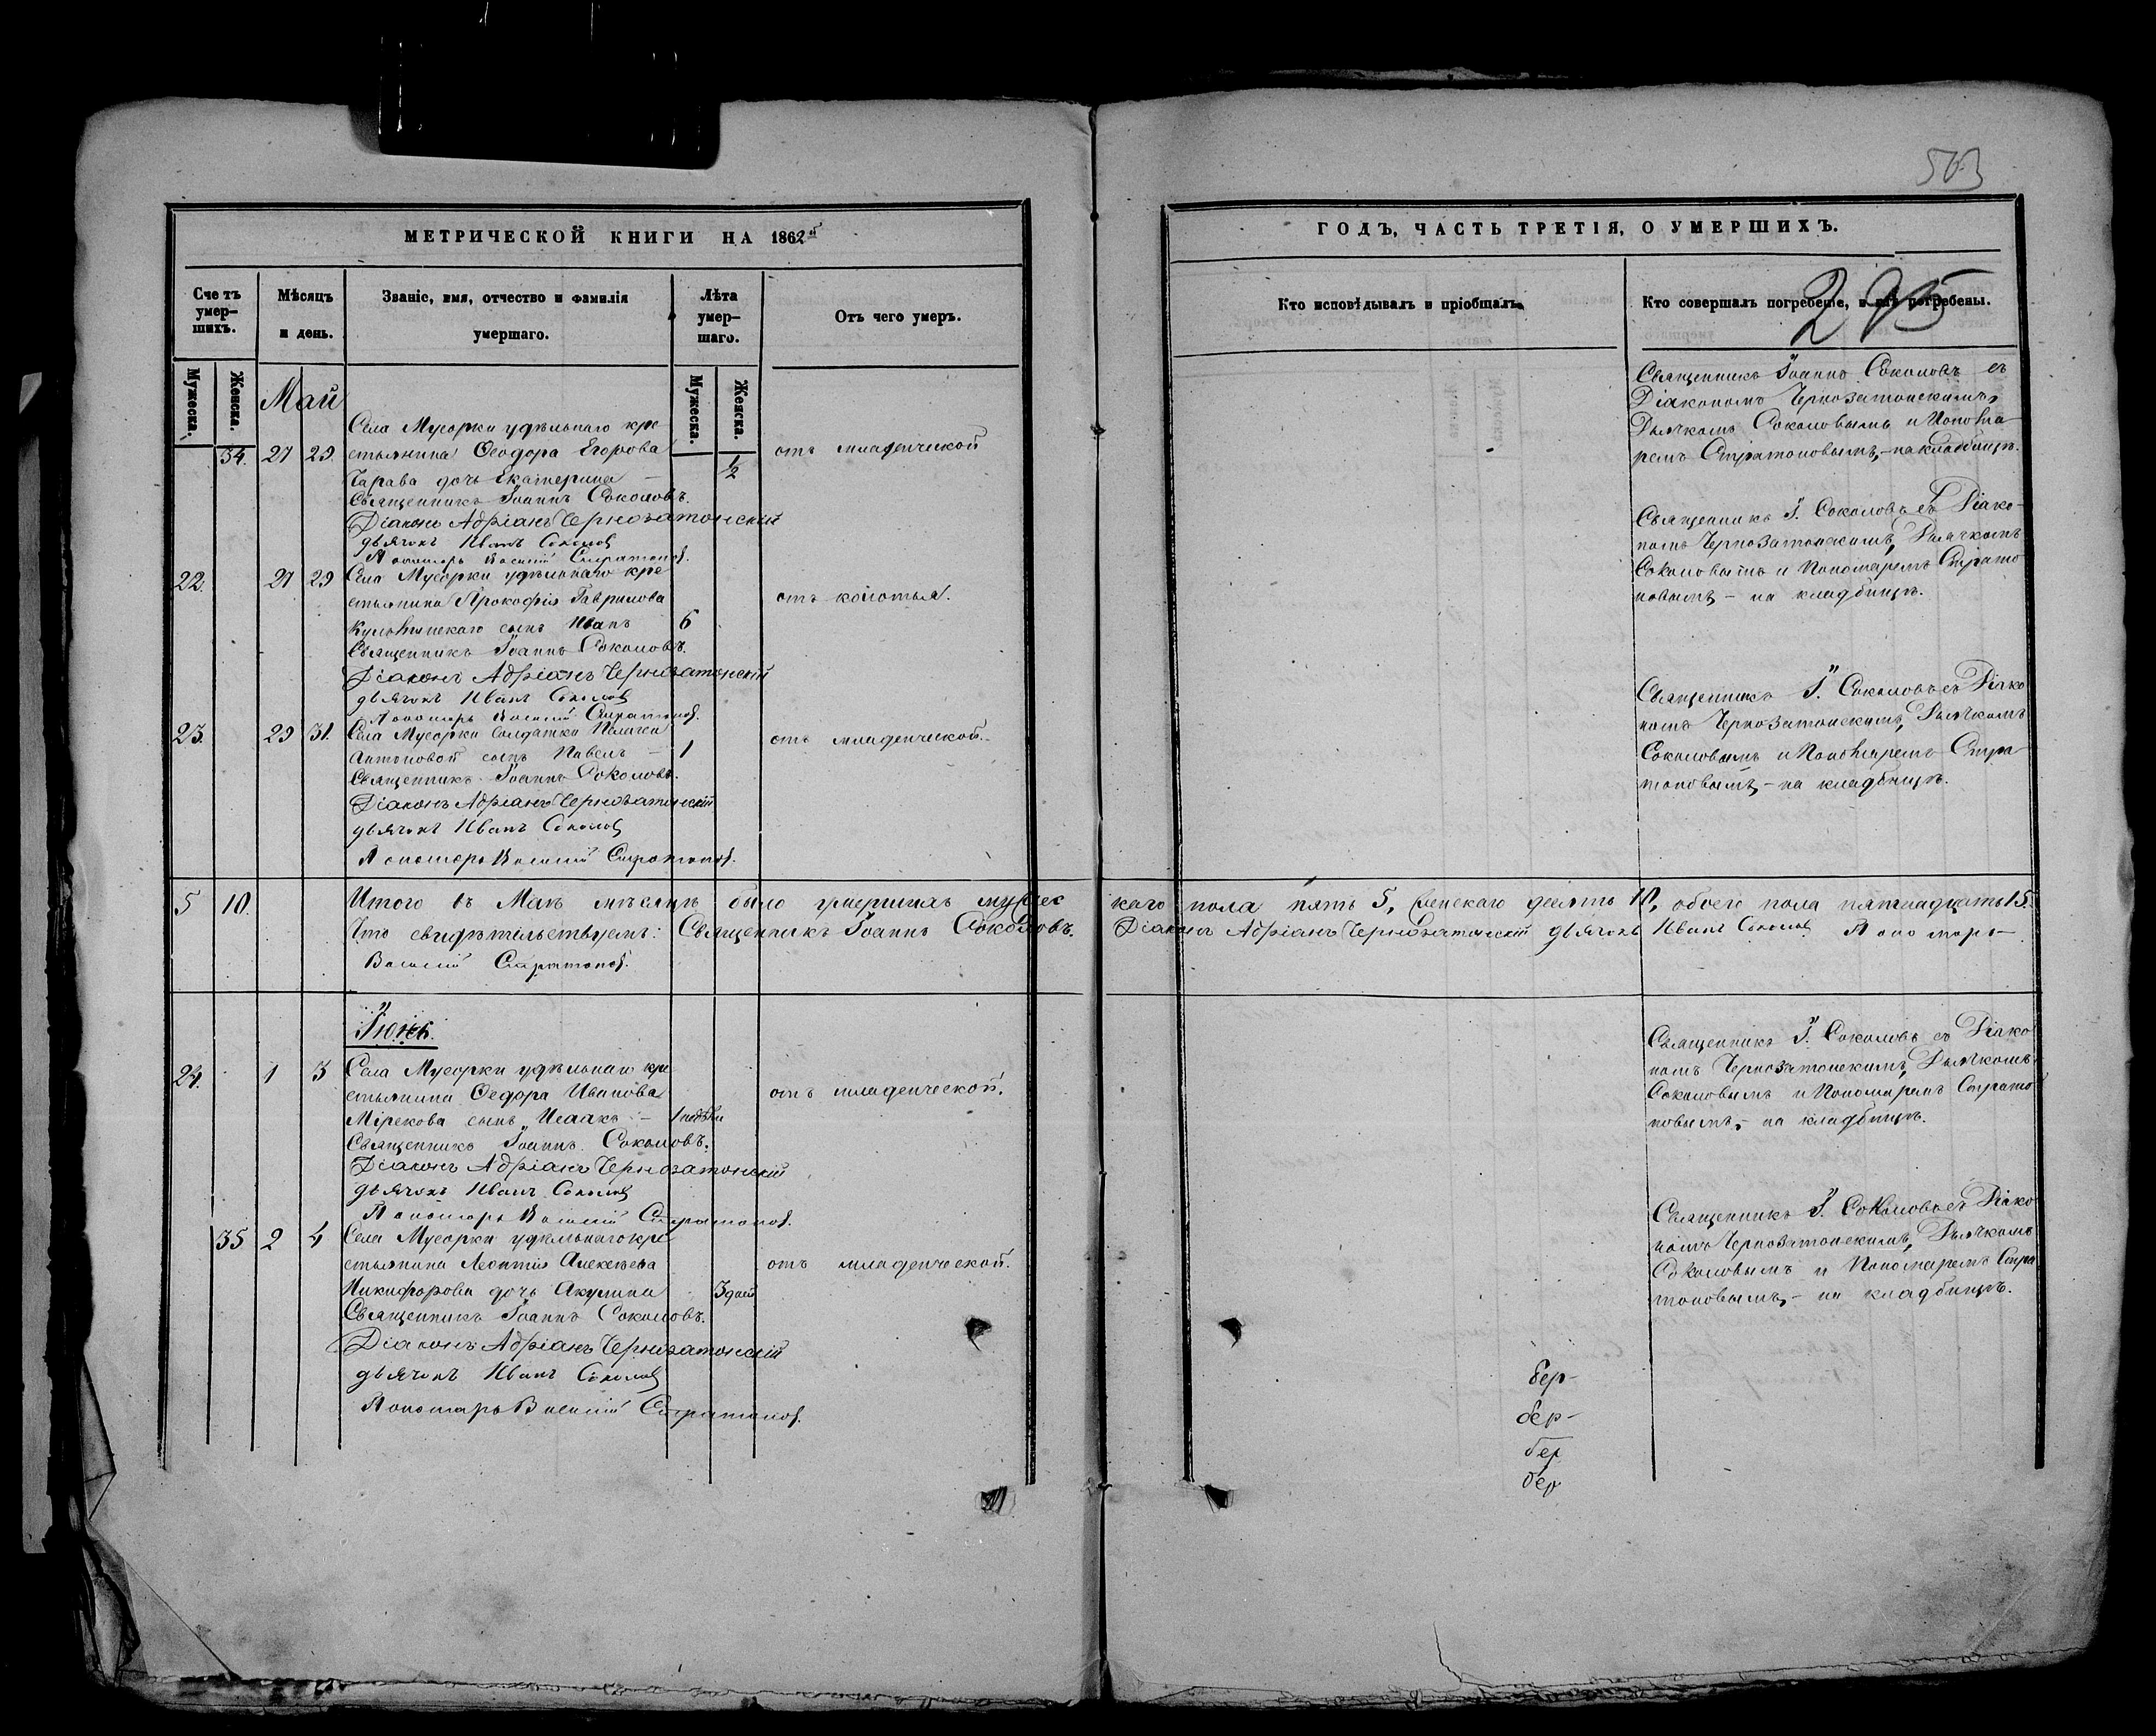 503
МЕТРИЧЕСКОЙ КНИГИ НА 1862й
ГОДЪ, ЧАСТЬ ТРЕТІЯ, О УМЕРШИХЪ.
295
Счетъ умер-
шихъ.
Мѣсяцъ
и день.
Званіе, имя, отчество и фамилія
умершаго.
Лѣта
умер-
шаго.
Отъ чего умеръ.
Кто исповѣдывалъ и пріобщалъ.
Кто совершалъ погребеніе, и гдѣ погребены.
Мужеска.
Женска.
Мужеска.
Женска.
Май
Села Мусорки удѣльнаго кре
34. 27 29. стьянина Ѳеодора Егорова
½
отъ младенческой
дочь Екатерина
Священникъ Іоаннъ Соколовъ.
Діаконъ Адріанъ Чернозатонскій
дьячокъ Иванъ Соколов
Пономарь Василій Стратонов.
Священникъ Іоаннъ Соколовъ съ
Діакономъ Чернозатонскимъ,
Дьячкомъ Соколовымъ и Понома-
ремъ Стратоновымъ, - на кладбищѣ.
22. 27 29 Села Мусорки удѣльнаго кре
стьянина Прокофія Гаврилова
сынъ Иванъ 6
отъ колотья.
Священникъ Іоаннъ Соколовъ.
Діаконъ Адріанъ Чернозатонскій
дьячокъ Иванъ Соколов
Пономарь Василій Стратонов.
Священникъ І. Соколовъ съ Діако-
номъ Чернозатонскимъ, Дьячкомъ
Соколовымъ и Пономаремъ Страто
новымъ, - на кладбищѣ.
23. 29 31. Села Мусорки солдатки Пелагеи
Антоновой сынъ Павелъ - 1
отъ младенческой.
Священникъ Іоаннъ Соколовъ.
Діаконъ Адріанъ Чернозатонскій
дьячокъ Иванъ Соколов
Пономарь Василій Стратонов.
Священникъ І. Соколовъ съ Діако
номъ Чернозатонскимъ, Дьячкомъ
Соколовымъ и Пономаремъ Стра
тоновымъ, - на кладбищѣ.
5 10. Итого въ Маѣ мѣсяцѣ было умершихъ мужес каго пола пять 5, женскаго десять 10, обоего пола пятнадцать 15.
Что свидѣтельствуемъ: Священникъ Іоаннъ Соколовъ. Діаконъ Адріанъ Чернозатонскій дьячокъ Иванъ Соколов Пономарь
Василій Стратонов.
Іюнь.
24. 1 3 Села Мусорки удѣльнаго кре
стьянина Ѳедора Иванова
Мірекова сынъ Исаакъ - 1 недѣли
отъ младенческой.
Священникъ Іоаннъ Соколовъ.
Діаконъ Адріанъ Чернозатонскій
дьячокъ Иванъ Соколов
Пономарь Василій Стратонов.
Священникъ І. Соколовъ съ Діако
номъ Чернозатонскимъ, Дьячкомъ
Соколовымъ и Пономаремъ Страто
новымъ, - на кладбищѣ.
35 2 4 Села Мусорки удѣльнаго кре
стьянина Леонтія Алексѣева
Никифорова дочь Акулина 3 дней
отъ младенческой.
Священникъ Іоаннъ Соколовъ.
Діаконъ Адріанъ Чернозатонскій
дьячокъ Иванъ Соколов
Пономарь Василій Стратонов.
Священникъ І. Соколовъ съ Діако
номъ Чернозатонскимъ, Дьячкомъ
Соколовымъ и Пономаремъ Стра
тоновымъ, - на кладбищѣ.
бер-
бер-
бер
бер